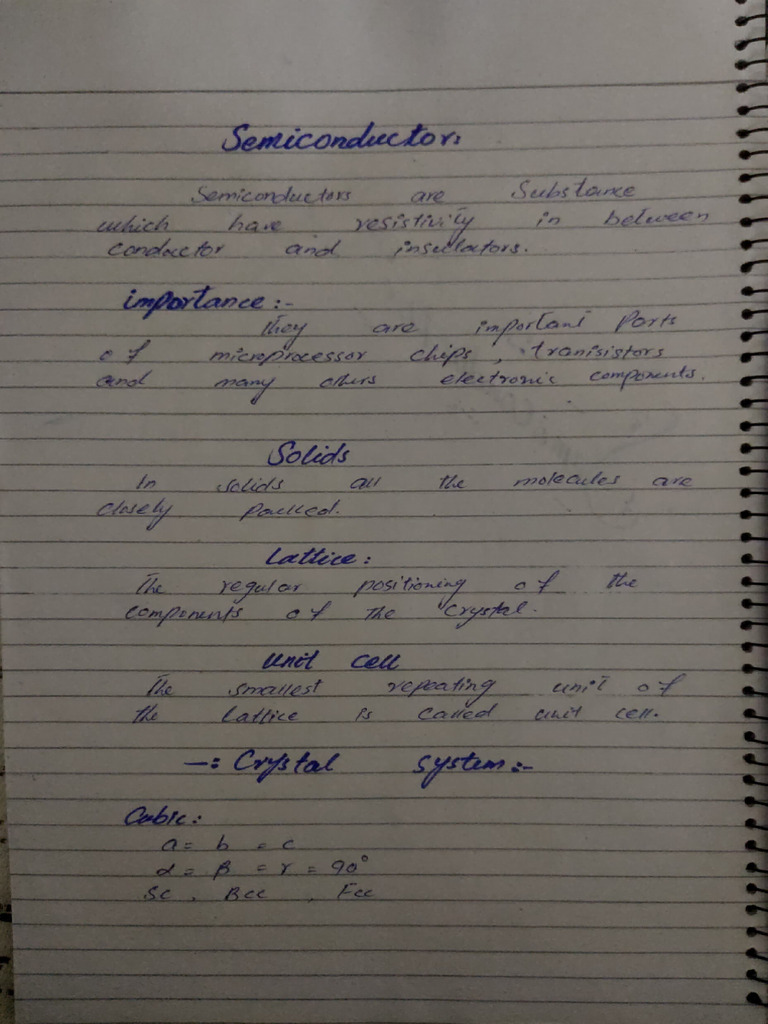 Semiconductor:
Semiconductors are Substance
which have resistivity in between
conductor and insulators.
importance :-
They are important Parts
of microprocessor chips, tranisistors
and many others electronic components.
Solids
In solids all the molecules are
closely packed.
Lattice:
The regular positioning of the
components of the Crystal.
unit cell
The smallest repeating unit of
the Lattice is called unit cell.
-: Crystal system:-
Cubic:
a = b = c
α = β = γ = 90°
Sc, Bcc, Fcc